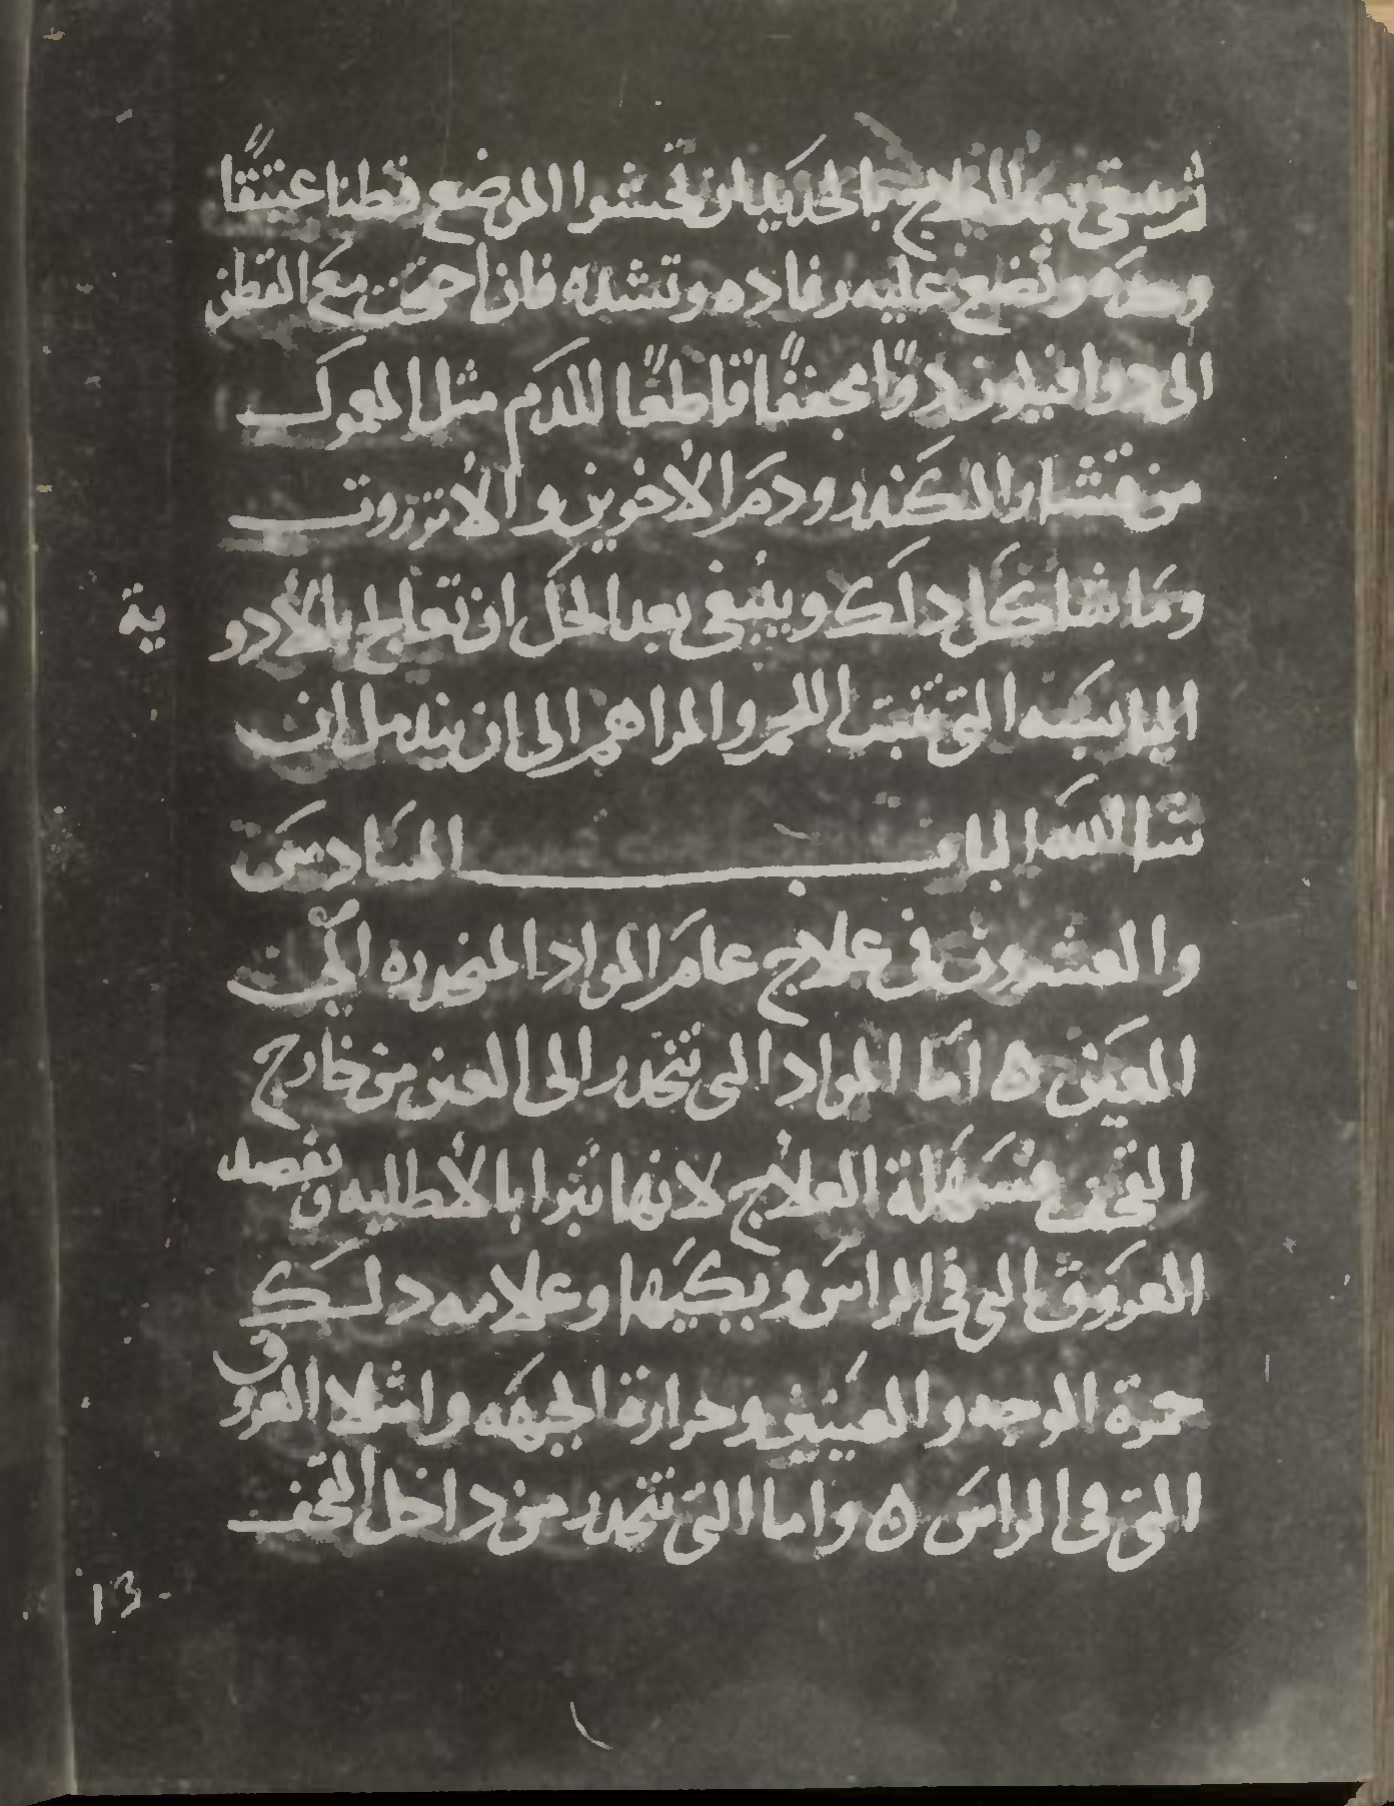 ثم ينبغي بعد العلاج بالحديد ان تحشوا الموضع قطنا عتيقًا
وحده وتضع عليه رفاده وتشده فان احتجت مع القطن
الى دوا فيكون دوًا مجففًا قاطعًا للدم مثل المعمول
من قشار الكندر ودم الاخوين والانزروت
وما شاكل دلك وينبغى بعد الحل ان تعالج بالادو
ية
اليابسه التى تنبت اللحم والمراهم الى ان يندمل ان
شا الله البــاب السادس
والعشرون فى علاج عام المواد المنحدره الى
العين ه اما المواد التى تنحدر الى العين من خارج
القحف فسهلة العلاج لانها تبرا بالاطليه وبفصد
العروق التى فى الراس وبكيها وعلامه دلك
حمرة الوجه والعينين وحرارة الجبهه وامتلا العروق
التى فى الراس ه واما التى تنحدر من داخل القحف
13